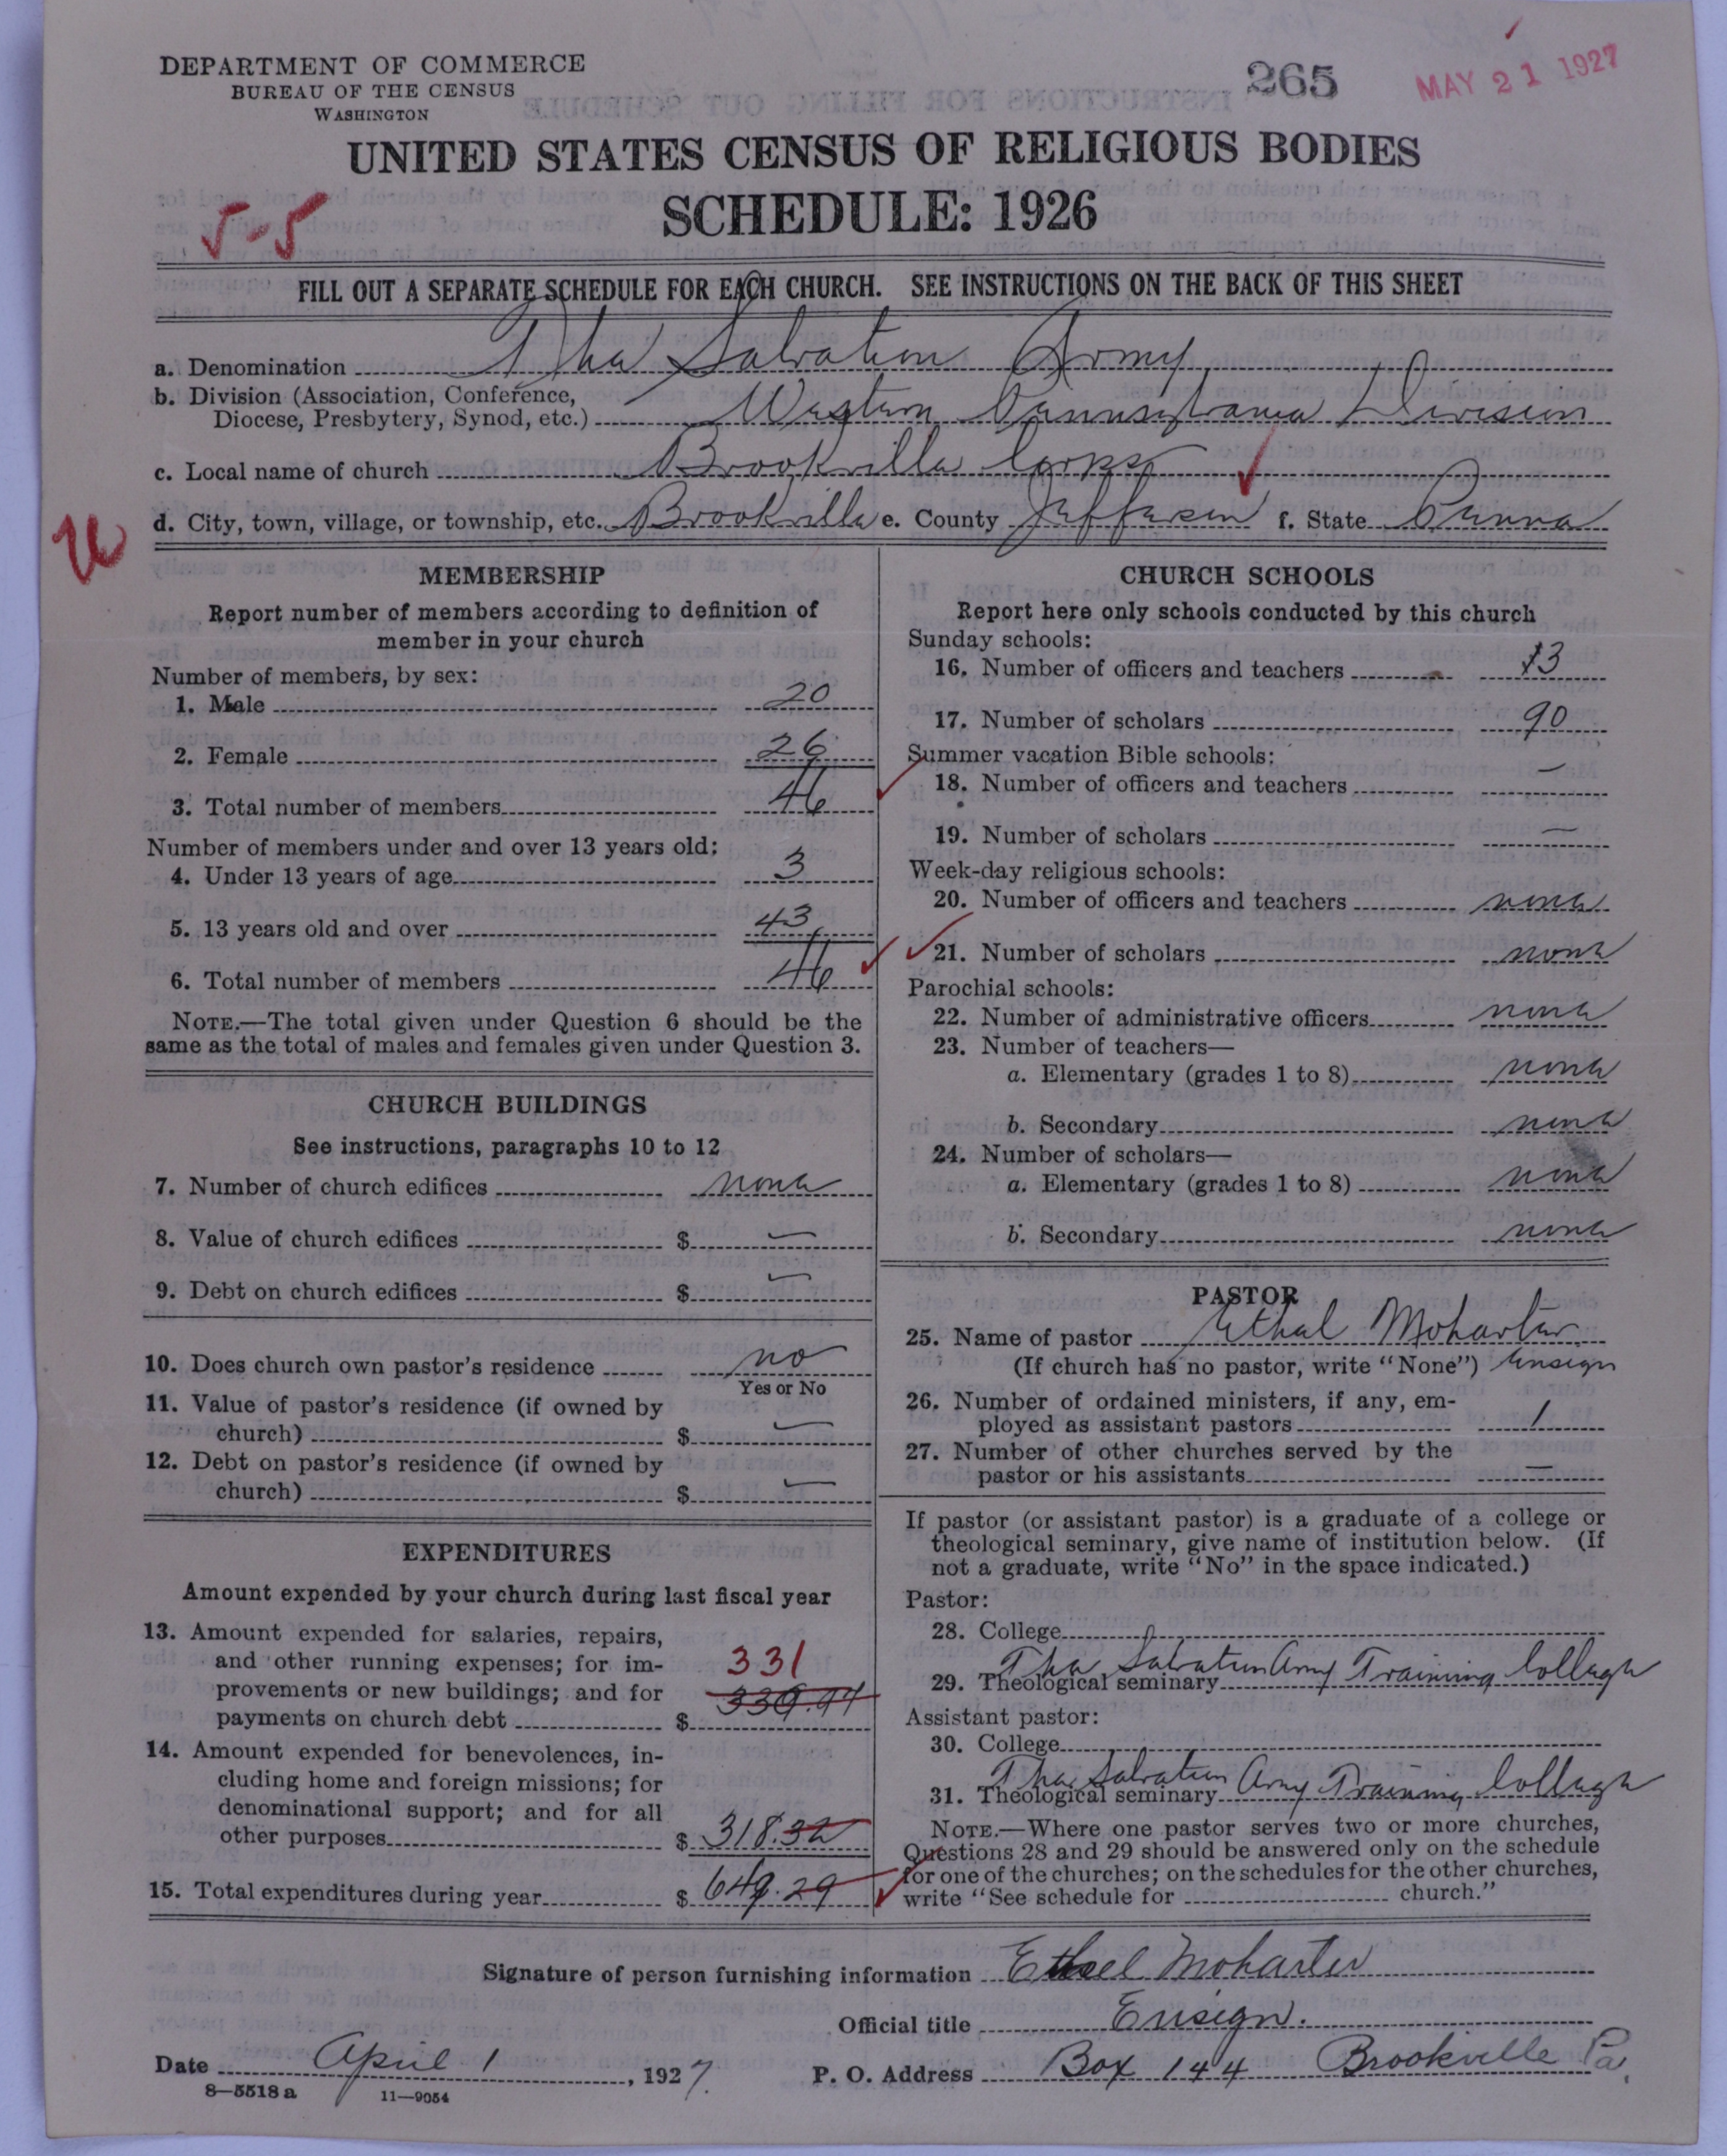 DEPARTMENT OF COMMERCE
BUREAU OF THE CENSUS
WASHINGTON
265
MAY 21 1927
UNITED STATES CENSUS OF RELIGIOUS BODIES
SCHEDULE: 1926
5-5
FILL OUT A SEPARATE SCHEDULE FOR EACH CHURCH. SEE INSTRUCTIONS ON THE BACK OF THIS SHEET
a. Denomination The Salvation Army
b. Division (Association, Conference,
Diocese, Presbytery, Synod, etc.) Western Pennsylvania Division
c. Local name of church Brookville Corps
d. City, town, village, or township, etc. Brookville e. County Jefferson f. State Penna
MEMBERSHIP
Report number of members according to definition of
member in your church
Number of members, by sex:
1. Male 20
2. Female 26
3. Total number of members 46
Number of members under and over 13 years old:
4. Under 13 years of age 3
5. 13 years old and over 43
6. Total number of members 46
NOTE.—The total given under Question 6 should be the
same as the total of males and females given under Question 3.
CHURCH BUILDINGS
See instructions, paragraphs 10 to 12
7. Number of church edifices none
8. Value of church edifices $ —
9. Debt on church edifices $ —
10. Does church own pastor's residence no
Yes or No
11. Value of pastor's residence (if owned by
church) $ —
12. Debt on pastor's residence (if owned by
church) $ —
EXPENDITURES
Amount expended by your church during last fiscal year
13. Amount expended for salaries, repairs,
and other running expenses; for im-
provements or new buildings; and for
payments on church debt $ 331
14. Amount expended for benevolences, in-
cluding home and foreign missions; for
denominational support; and for all
other purposes $ 318.32
15. Total expenditures during year $ 649.29
CHURCH SCHOOLS
Report here only schools conducted by this church
Sunday schools:
16. Number of officers and teachers 13
17. Number of scholars 90
Summer vacation Bible schools:
18. Number of officers and teachers —
19. Number of scholars —
Week-day religious schools:
20. Number of officers and teachers none
21. Number of scholars none
Parochial schools:
22. Number of administrative officers none
23. Number of teachers—
a. Elementary (grades 1 to 8) none
b. Secondary none
24. Number of scholars—
a. Elementary (grades 1 to 8) none
b. Secondary none
PASTOR
25. Name of pastor Ethel Moharter
(If church has no pastor, write "None") Ensign
26. Number of ordained ministers, if any, em-
ployed as assistant pastors 1
27. Number of other churches served by the
pastor or his assistants —
If pastor (or assistant pastor) is a graduate of a college or
theological seminary, give name of institution below. (If
not a graduate, write "No" in the space indicated.)
Pastor:
28. College
29. Theological seminary The Salvation Army Training College
Assistant pastor:
30. College
31. Theological seminary The Salvation Army Training College
NOTE.—Where one pastor serves two or more churches,
Questions 28 and 29 should be answered only on the schedule
for one of the churches; on the schedules for the other churches,
write "See schedule for church."
Signature of person furnishing information Ethel Moharter
Official title Ensign.
Date April 1, 1927. P. O. Address Box 144 Brookville Pa.
8—5518 a 11—9054